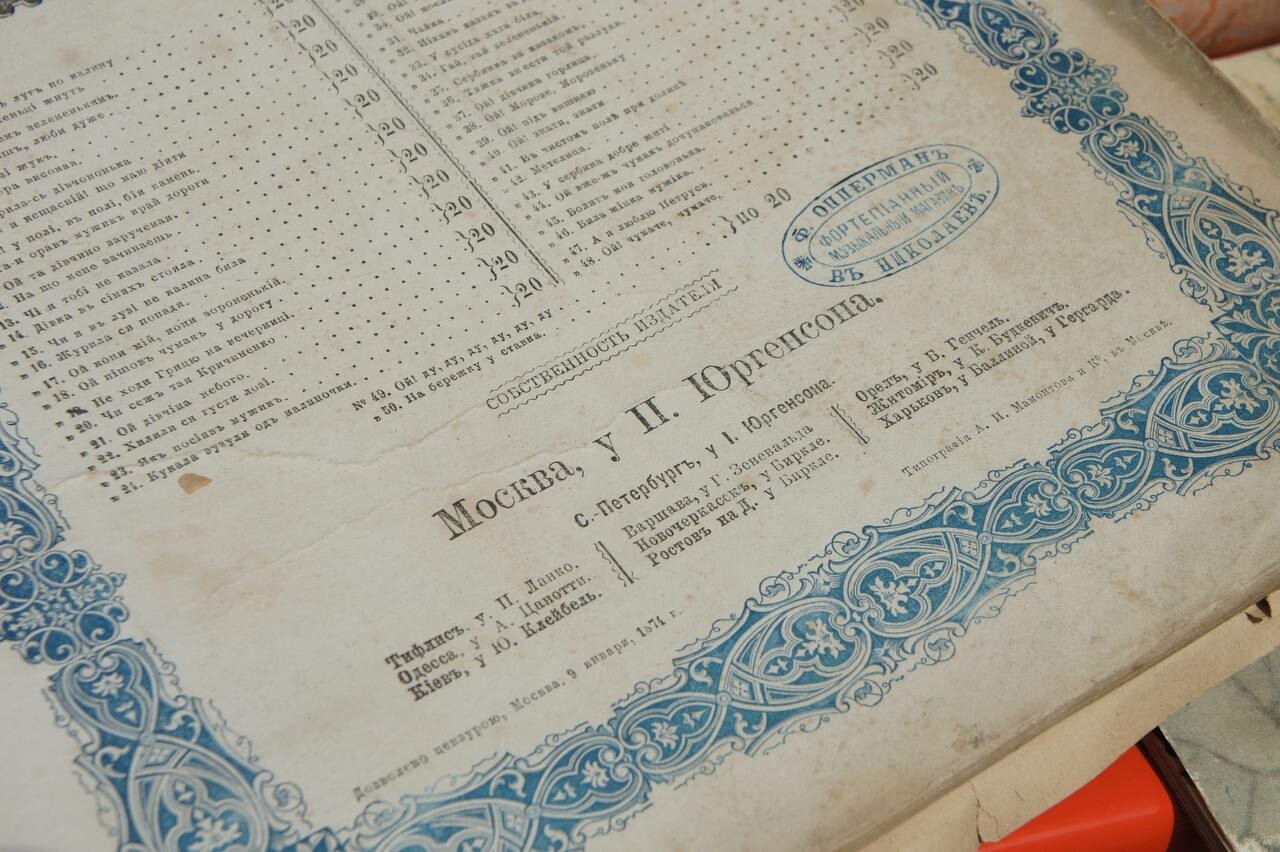 ъ лугъ по калину
женьці жнутъ
зелененькимъ.
люби дуже
жукъ.
ра висовая.
рила-сь дівчононька
я нещасній! що маю діяти
у полі, въ полі, бія камень.
та и оравъ мужикъ край дороги
Ой та дівчино зарученая.
На що мене зачинаешъ.
13. Чі я тобі не казала
" 14. Дівка въ сіняхъ стояла.
" 15. Чи я въ лузі не калина била
" 16. Журила ся попадя.
" 17. Ой кони мій, кони вороненькій.
" 18. Ой пішовъ чумакъ у дорогу
Не ходи Грицю на вечерниці.
" 20. Чи сежъ тая Кричаненко
" 21. Ой дівчіна небого.
" 22. Хилили ся густи лозі.
" 23. Якъ посіявъ мужикъ.
" 24. Кувала зузули одъ малиночки.
}20
}20
}20
}20
}20
}20
}20
}20
}20
}20
31. Чайка
32. Нікавъ казавъ за
33. У сусіда хата біла,
34. Гай, гай зелененькій.
" 35. Сербинка завакономъ,
" 37. Ой! дівчина горлица.
" 38. Ой! Морозе, Морозеньку
" 39. Ой! підъ вишнею
" 40. Ой! знати, знати
" 41. Въ чистомъ полѣ при долинѣ
" 42. Метелиця.
" 43. У сербина добре житі
" 44. Ой вже-жъ чумакъ дочумаковався
" 45. Болить моя головонька.
" 46. Била жінка мужіка.
" 47. А я люблю Петруся.
" 48. Ой! чумаче, чумаче.
20
}20
}20
}по 20
№ 49. Ой! ду, ду, ду, ду, ду
" 50. На бережку у ставка.
Ф. ОППЕРМАНЪ
ФОРТЕПІАННЫЙ
МУЗЫКАЛЬНЫЙ МАГАЗИНЪ
ВЪ НИКОЛАЕВѢ
СОБСТВЕННОСТЬ ИЗДАТЕЛЯ
Москва, у П. Юргенсона.
С.-Петербургъ, у І. Юргенсона.
Тифлисъ, у. П. Ланко.
Одесса, у А. Цанотти.
Кіевъ, у Ю. Клейбель.
Варшава, у Г. Зеневальда
Новочеркасскъ, у Биркле.
Ростовъ на Д. у Биркле.
Орелъ, у Б. Генчель.
Житоміръ, у К. Будкевичъ.
Харьковъ, у Баллиной, у Гергарда.
Типографія А. И. Мамонтова и К°. въ Москвѣ.
Дозволено цензурою, Москва. 9 января, 1871 г.